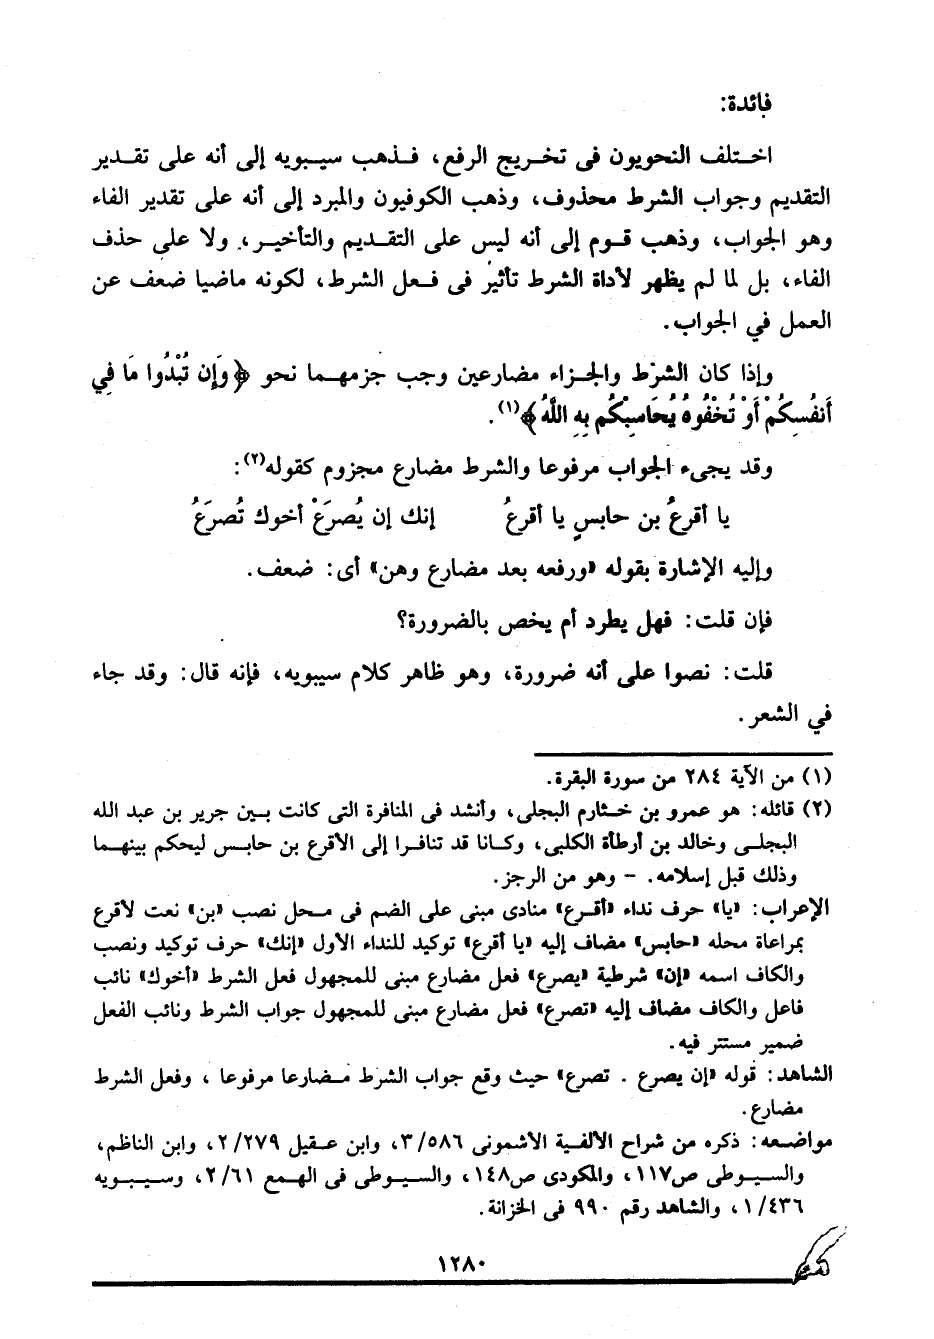 فائدة:
اختلف النحويون فى تخريج الرفع، فذهب سيبويه إلى أنه على تقدير
التقديم وجواب الشرط محذوف، وذهب الكوفيون والمبرد إلى أنه على تقدير الفاء
وهو الجواب، وذهب قوم إلى أنه ليس على التقديم والتأخير، ولا على حذف
الفاء، بل لما لم يظهر لأداة الشرط تأثير فى فعل الشرط، لكونه ماضيا ضعف عن
العمل في الجواب.
وإذا كان الشرط والجزاء مضارعين وجب جزمهما نحو ﴿وَإِن تُبْدُوا مَا فِي
أَنفُسِكُمْ أَوْ تُخْفُوهُ يُحَاسِبْكُم بِهِ اللَّهُ﴾(١).
وقد يجىء الجواب مرفوعا والشرط مضارع مجزوم كقوله(٢):
يا أقرعُ بن حابسٍ يا أقرعُ إنك إن يُصرَعْ أخوك تُصرَعُ
وإليه الإشارة بقوله «ورفعه بعد مضارع وهن» أى: ضعف.
فإن قلت: فهل يطرد أم يخص بالضرورة؟
قلت: نصوا على أنه ضرورة، وهو ظاهر كلام سيبويه، فإنه قال: وقد جاء
في الشعر.
(١) من الآية ٢٨٤ من سورة البقرة.
(٢) قائله: هو عمرو بن خثارم البجلى، وأنشد فى المنافرة التى كانت بين جرير بن عبد الله
البجلى وخالد بن أرطأة الكلبى، وكانا قد تنافرا إلى الأقرع بن حابس ليحكم بينهما
وذلك قبل إسلامه. - وهو من الرجز.
الإعراب: «يا» حرف نداء «أقرع» منادى مبنى على الضم فى محل نصب «بن» نعت لأقرع
بمراعاة محله «حابس» مضاف إليه «يا أقرع» توكيد للنداء الأول «إنك» حرف توكيد ونصب
والكاف اسمه «إن» شرطية «يصرع» فعل مضارع مبنى للمجهول فعل الشرط «أخوك» نائب
فاعل والكاف مضاف إليه «تصرع» فعل مضارع مبنى للمجهول جواب الشرط ونائب الفعل
ضمير مستتر فيه.
الشاهد: قوله «إن يصرع . تصرع» حيث وقع جواب الشرط مضارعا مرفوعا ، وفعل الشرط
مضارع.
مواضعه: ذكره من شراح الألفية الأشمونى ٣/٥٨٦، وابن عقيل ٢/٢٧٩، وابن الناظم،
والسيوطى ص١١٧، والمكودى ص١٤٨، والسيوطى فى الهمع ٢/٦١، وسيبويه
١/٤٣٦، والشاهد رقم ٩٩٠ فى الخزانة.
١٢٨٠